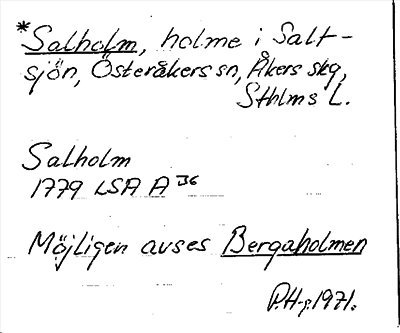 *Salholm, holme i Salt-
sjön, Österåkers sn, Åkers skg,
Sthlms L.
Salholm
1779 LSA A 36
Möjligen avses Bergaholmen
P.H-g. 1971.